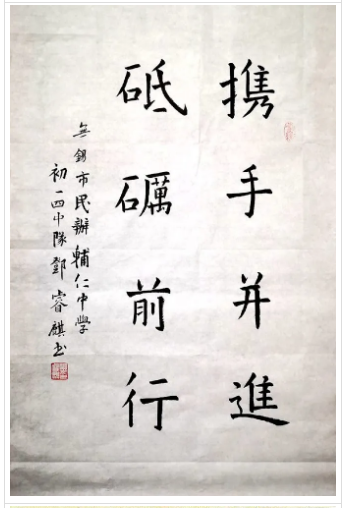 携手并進
砥礪前行
無錫市民辦輔仁中學
初一四中隊鄧睿麒书